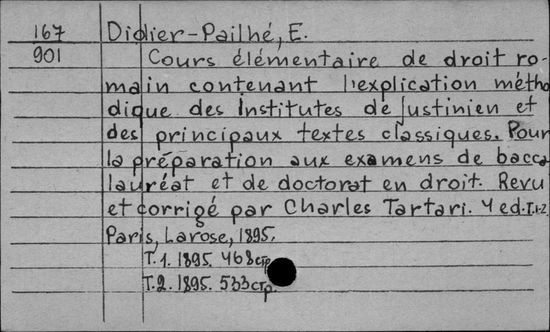 167 Didier-Pailhé, E.
901 Cours élémentaire de droit ro-
main contenant l'explication métho
dique des Institutes de Justinien et
des principaux textes classiques. Pour
la préparation aux examens de bacca
lauréat et de doctorat en droit. Revu
et corrigé par Charles Tartari. 4 ed. T. 1-2
Paris, Larose, 1895.
T. 1. 1895. 468 стр.
T. 2. 1895. 533 стр.